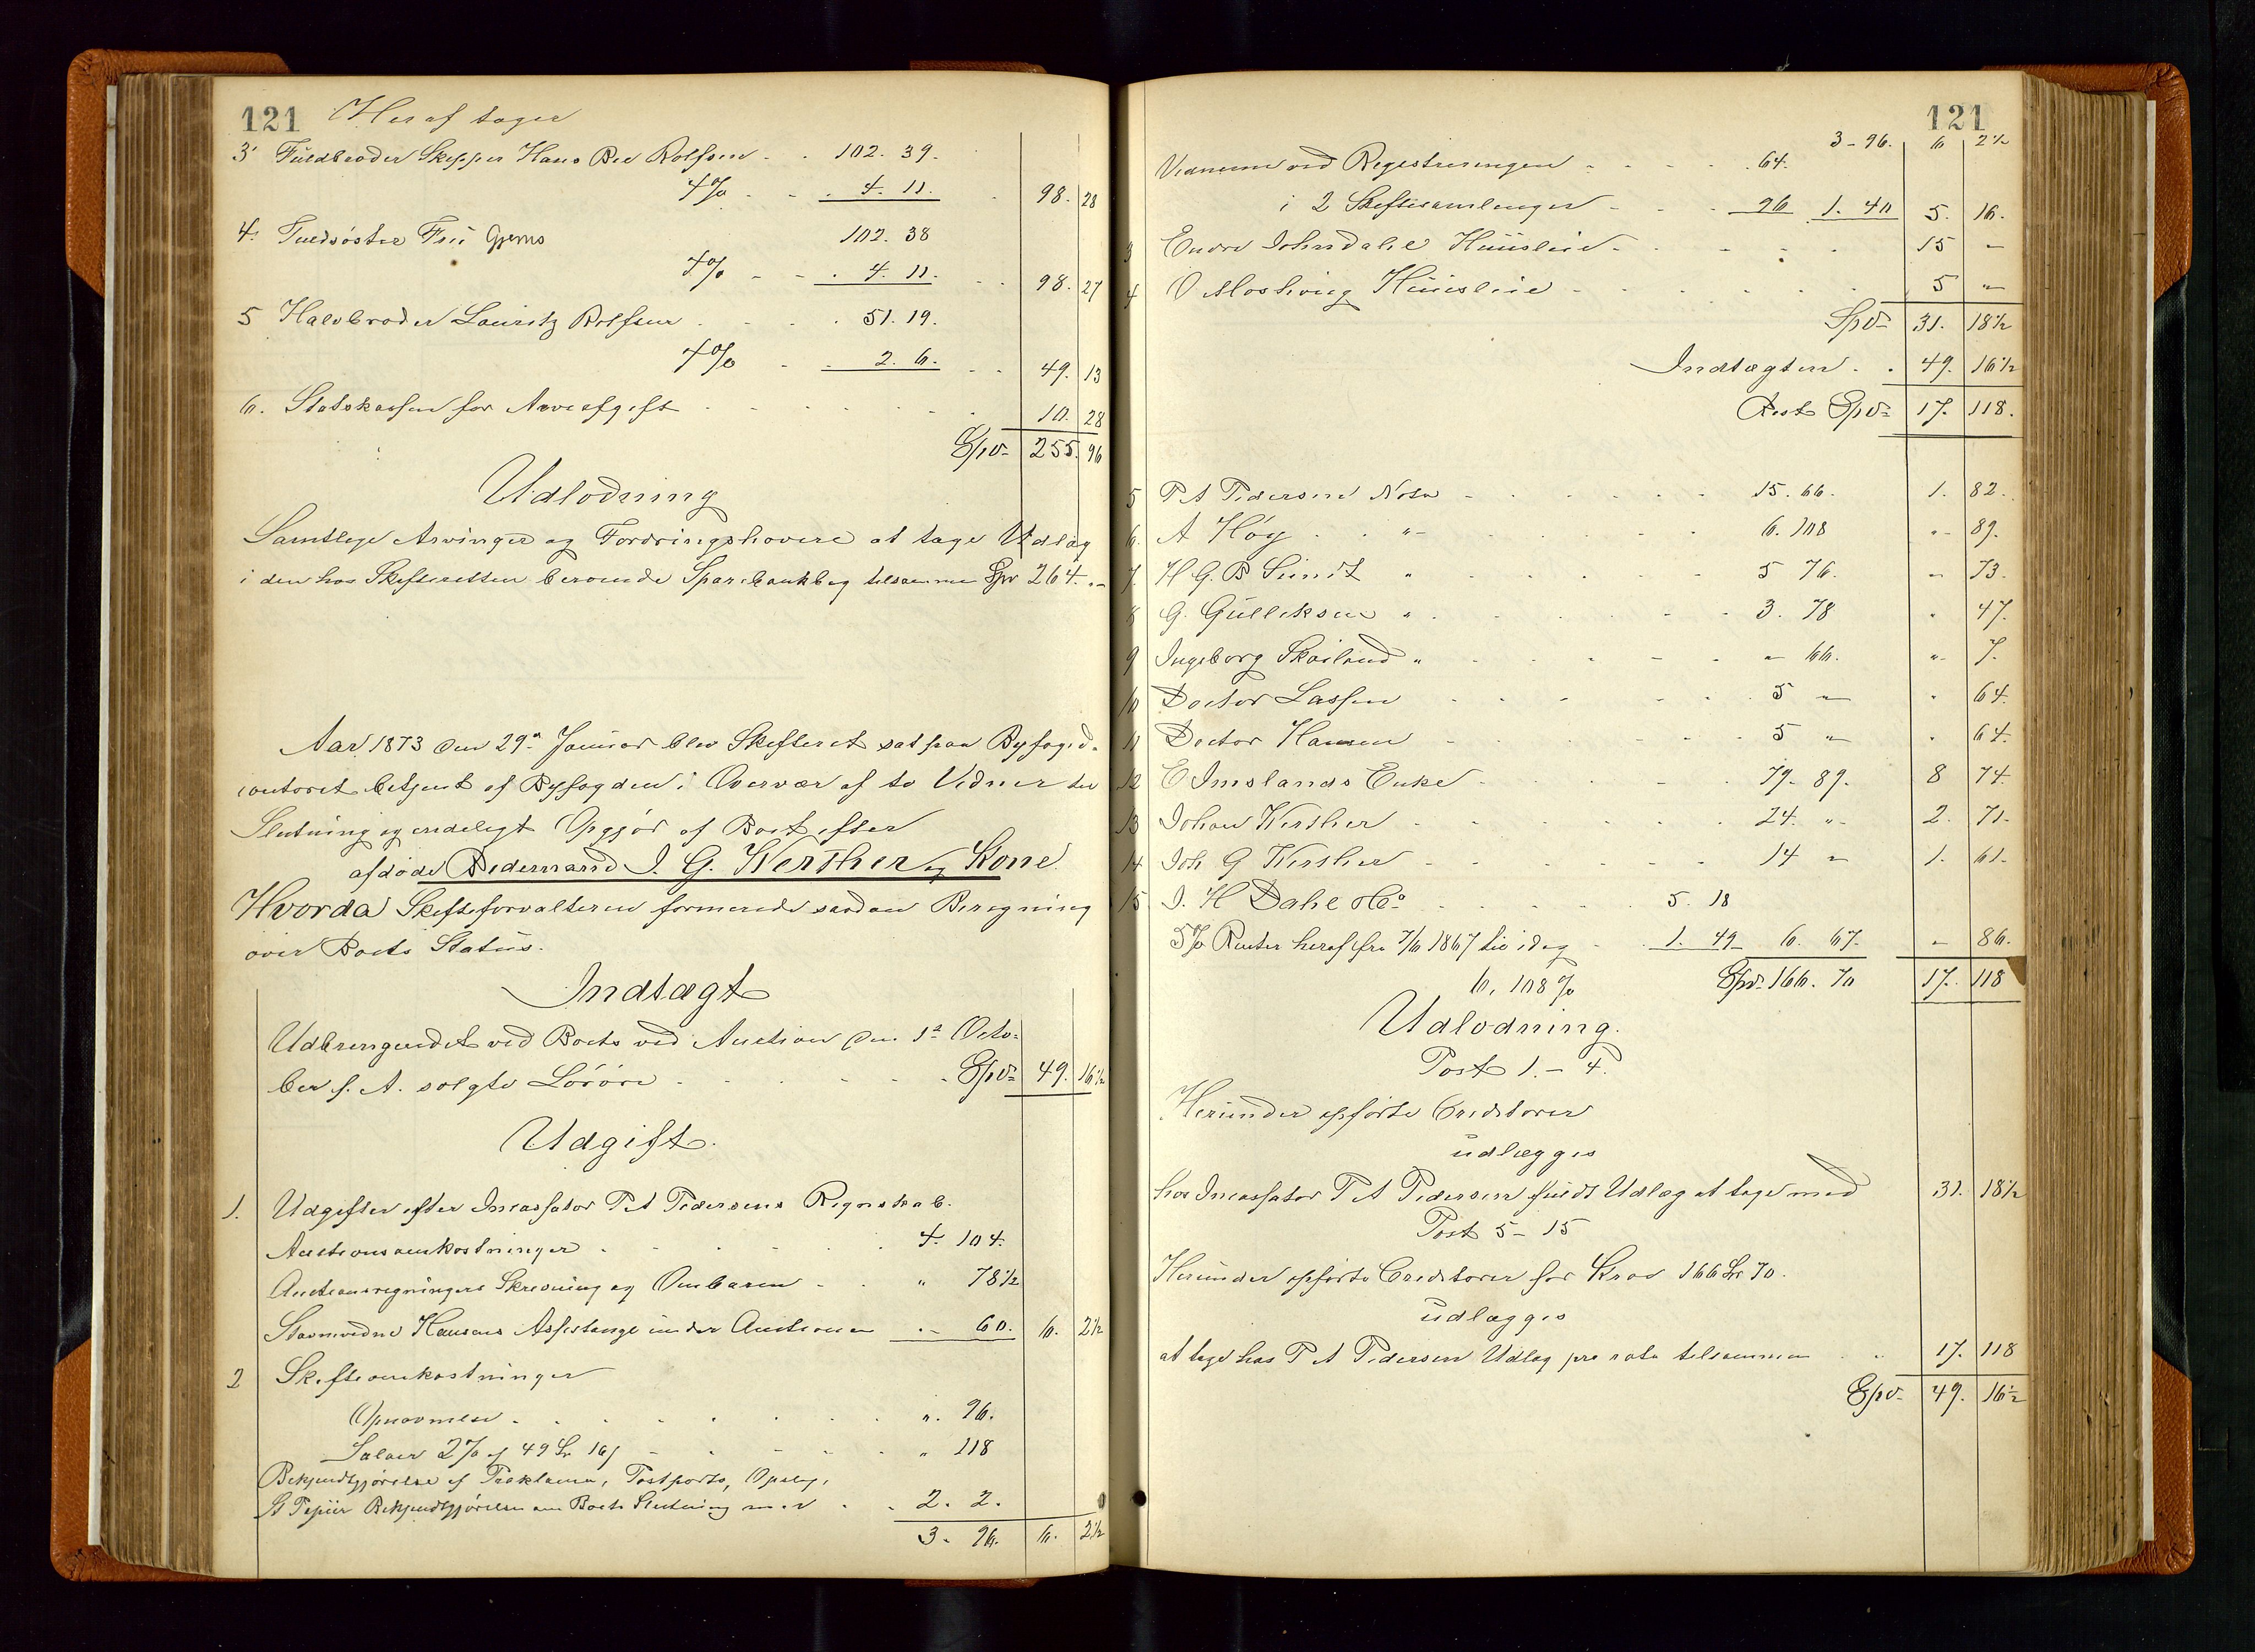 121 Heraf tager
3' Fuldbroder Skipper Hans Bee Rolfsen - . 102. 39.
4% - - . 4. 11. . 98. 28
4. Fuldsøster Fru Gjems 102. 38
4% - - . 4. 11. . . 98. 27
5 Halvbroder Lauritz Rolfsen . . . . 51. 19.
4% . . 2. 6. . . 49. 13
6. Statskassen for Arveafgift . . . . . . . 10. 28
Spd. 255. 96
Udlodning
Samtlige Arvinger og Fordringshavere at tage Udlæg
i den hos Skifteretten beroende Sparebankbog tilsammen Spd 264. "
Aar 1873 den 29de Januar blev Skifteret sat paa Byfoged-
contoret betjent af Byfogden i Overvær af to Vidner til
Slutning og endeligt Opgjør af Boet efter
afdøde Bødermand I. G. Werther og Kone.
Hvorda Skifteforvalteren formerede saadan Beregning
over Boets Status.
Indtægt
Udbringendet ved Boets ved Auction den 1ste Octo-
ber f. A. solgte Løsøre . . . . . . Spd. 49. 16½
Udgift.
1. Udgifter efter Incassator P A Pedersens Regnskab.
Auctionsomkostninger . . . . . . 4. 104.
Auctionsregningens Skrivning og Ombæren - . " 78½
Stævnevidne Hansens Assistanse under Auctionen . - 60. 6. 2½
2 Skifteomkostninger
Opnævnelse . . . . . . . . ". 96.
Salær 2% af 49 Spd 16 ß - . . . " 118
Bekjendtgjørelse af Proklama, Postporto, Opslag,
St Papiir Bekjendtgjørelse om Boets Slutning m. v . . 2. 2.
3. 96. 6. 2½
121
3 - 96. 6 2½
Vidnerne ved Registreringen . . . . . 64.
i 2 Skiftesamlinger . . . 96 1. 40 5. 16.
3 Endre Johndahl Huusleie . . . . . 15 "
4 O Moshoug Huusleie . . . . . . 5 "
Spd. 31. 18½
Indtægten . . 49. 16½
Rest Spd. 17. 118.
5 P A Pedersen Nota . . . . . . 15. 66. 1. 82.
6. A Høy . . " . . . . . . 6. 108 " 89.
7. H G. B Sundt " . . . . . 5 76. " 73.
8 G. Gulleksen " . . . . . . 3. 78 " 47.
9 Ingeborg Skailand " . . . . . . " 66. " 7.
10 Doctor Lassen . . . . . . 5 " " 64.
11 Doctor Hansen . . . . . . 5 " " 64.
12 E Imslands Enke . . . . . 79. 89. 8 74.
13 Johan Werther . . . . . . . 24. " 2. 71.
14 Joh G Werther . . . . . . . 14 " 1. 61.
15 I. H Dahl & Co . . . . . . 5. 18
5% Renter heraf fra 7/6 1867 til idag . . 1. 49 6. 67. " 86.
6, 108% Spd. 166. 70 17. 118
Udlodning.
Post 1. - 4.
Herunder opførte Creditorer
udlægges
hos Incassator P A Pedersen fuldt Udlæg at tage med 31. 18½
Post 5 - 15
Herunder opførte Creditorer for Krav 166 Spd 70.
udlægges
at tage hos P A Pedersen Udlæg pro rata tilsammen . . 17. 118
Spd. 49. 16½